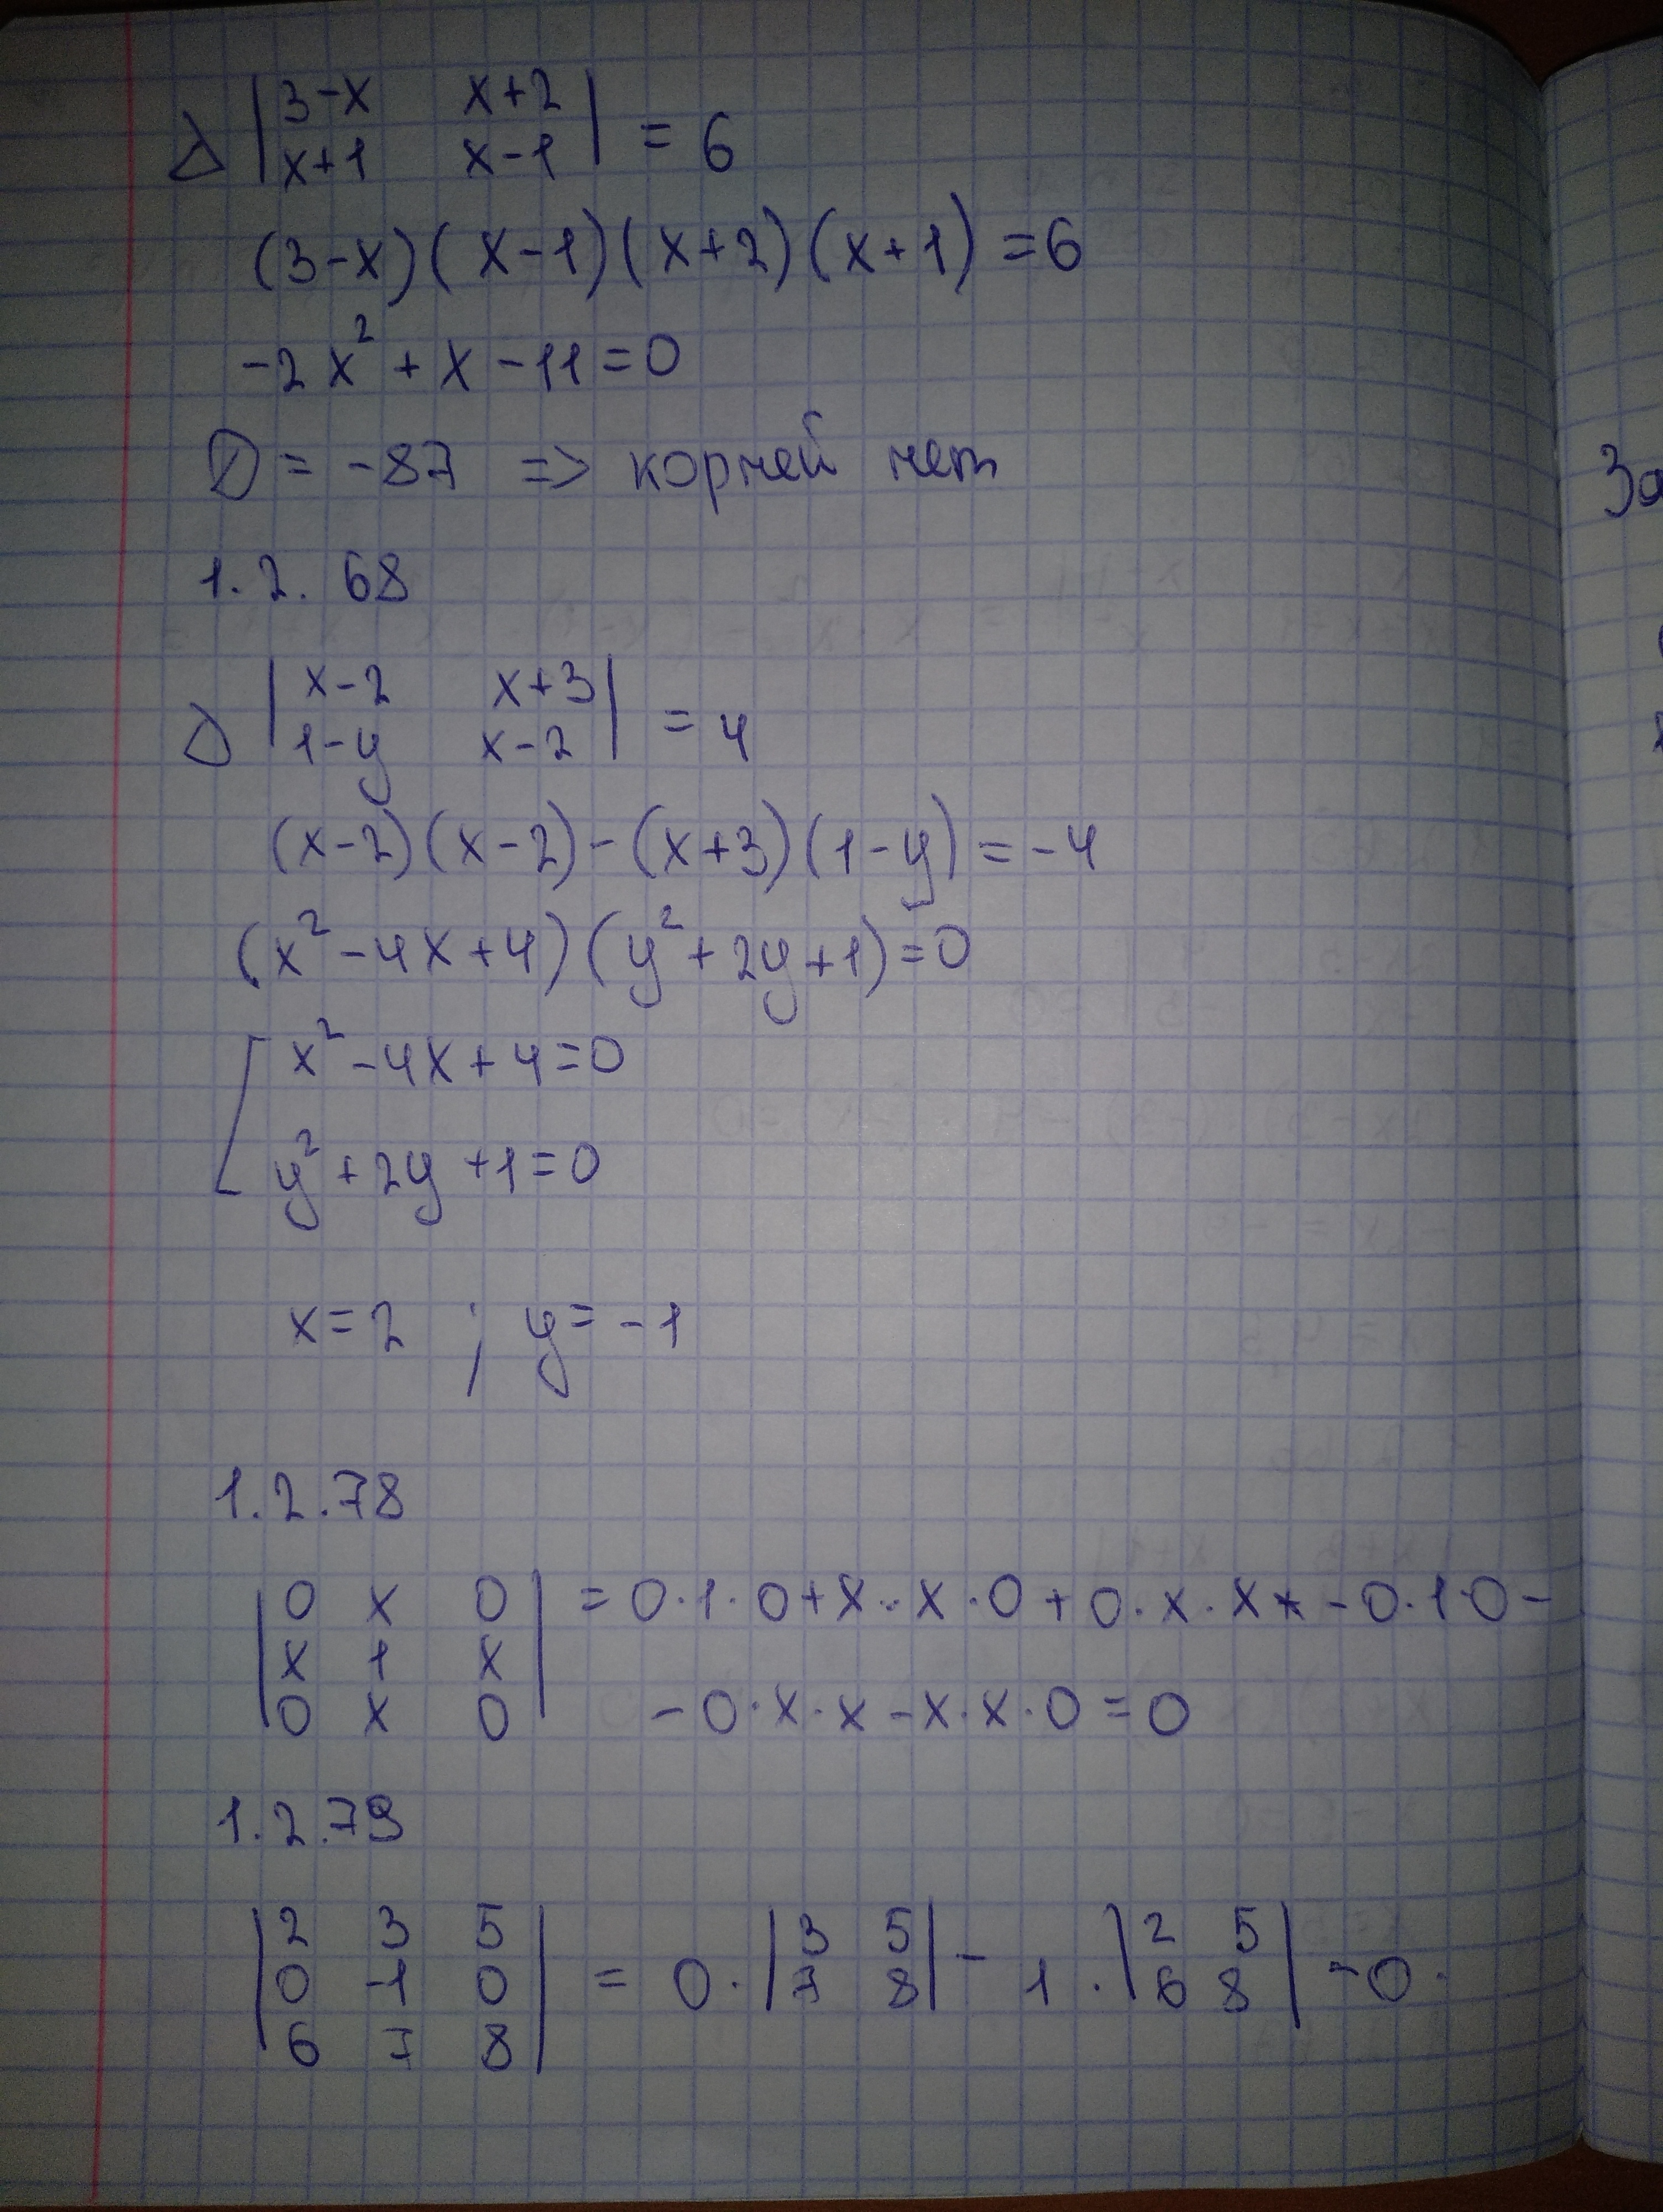 Δ |3-x x+2|
|x+1 x-1| = 6
(3-x)(x-1)(x+2)(x+1)=6
-2x²+x-11=0
D = -87 => корней нет
1.2. 68
Δ |x-2 x+3|
|1-y x-2| = 4
(x-2)(x-2)-(x+3)(1-y)=-4
(x²-4x+4)(y²+2y+1)=0
[ x²-4x+4=0
y²+2y+1=0
x=2 ; y=-1
1.2.78
|0 x 0| = 0·1·0+x·x·0+0·x·x -0·1·0-
|x 1 x|
|0 x 0| -0·x·x-x·x·0=0
1.2.79
|2 3 5|
|0 -1 0| = 0·|3 5| - 1·|2 5| -0·
|6 7 8| |7 8| |6 8|
За